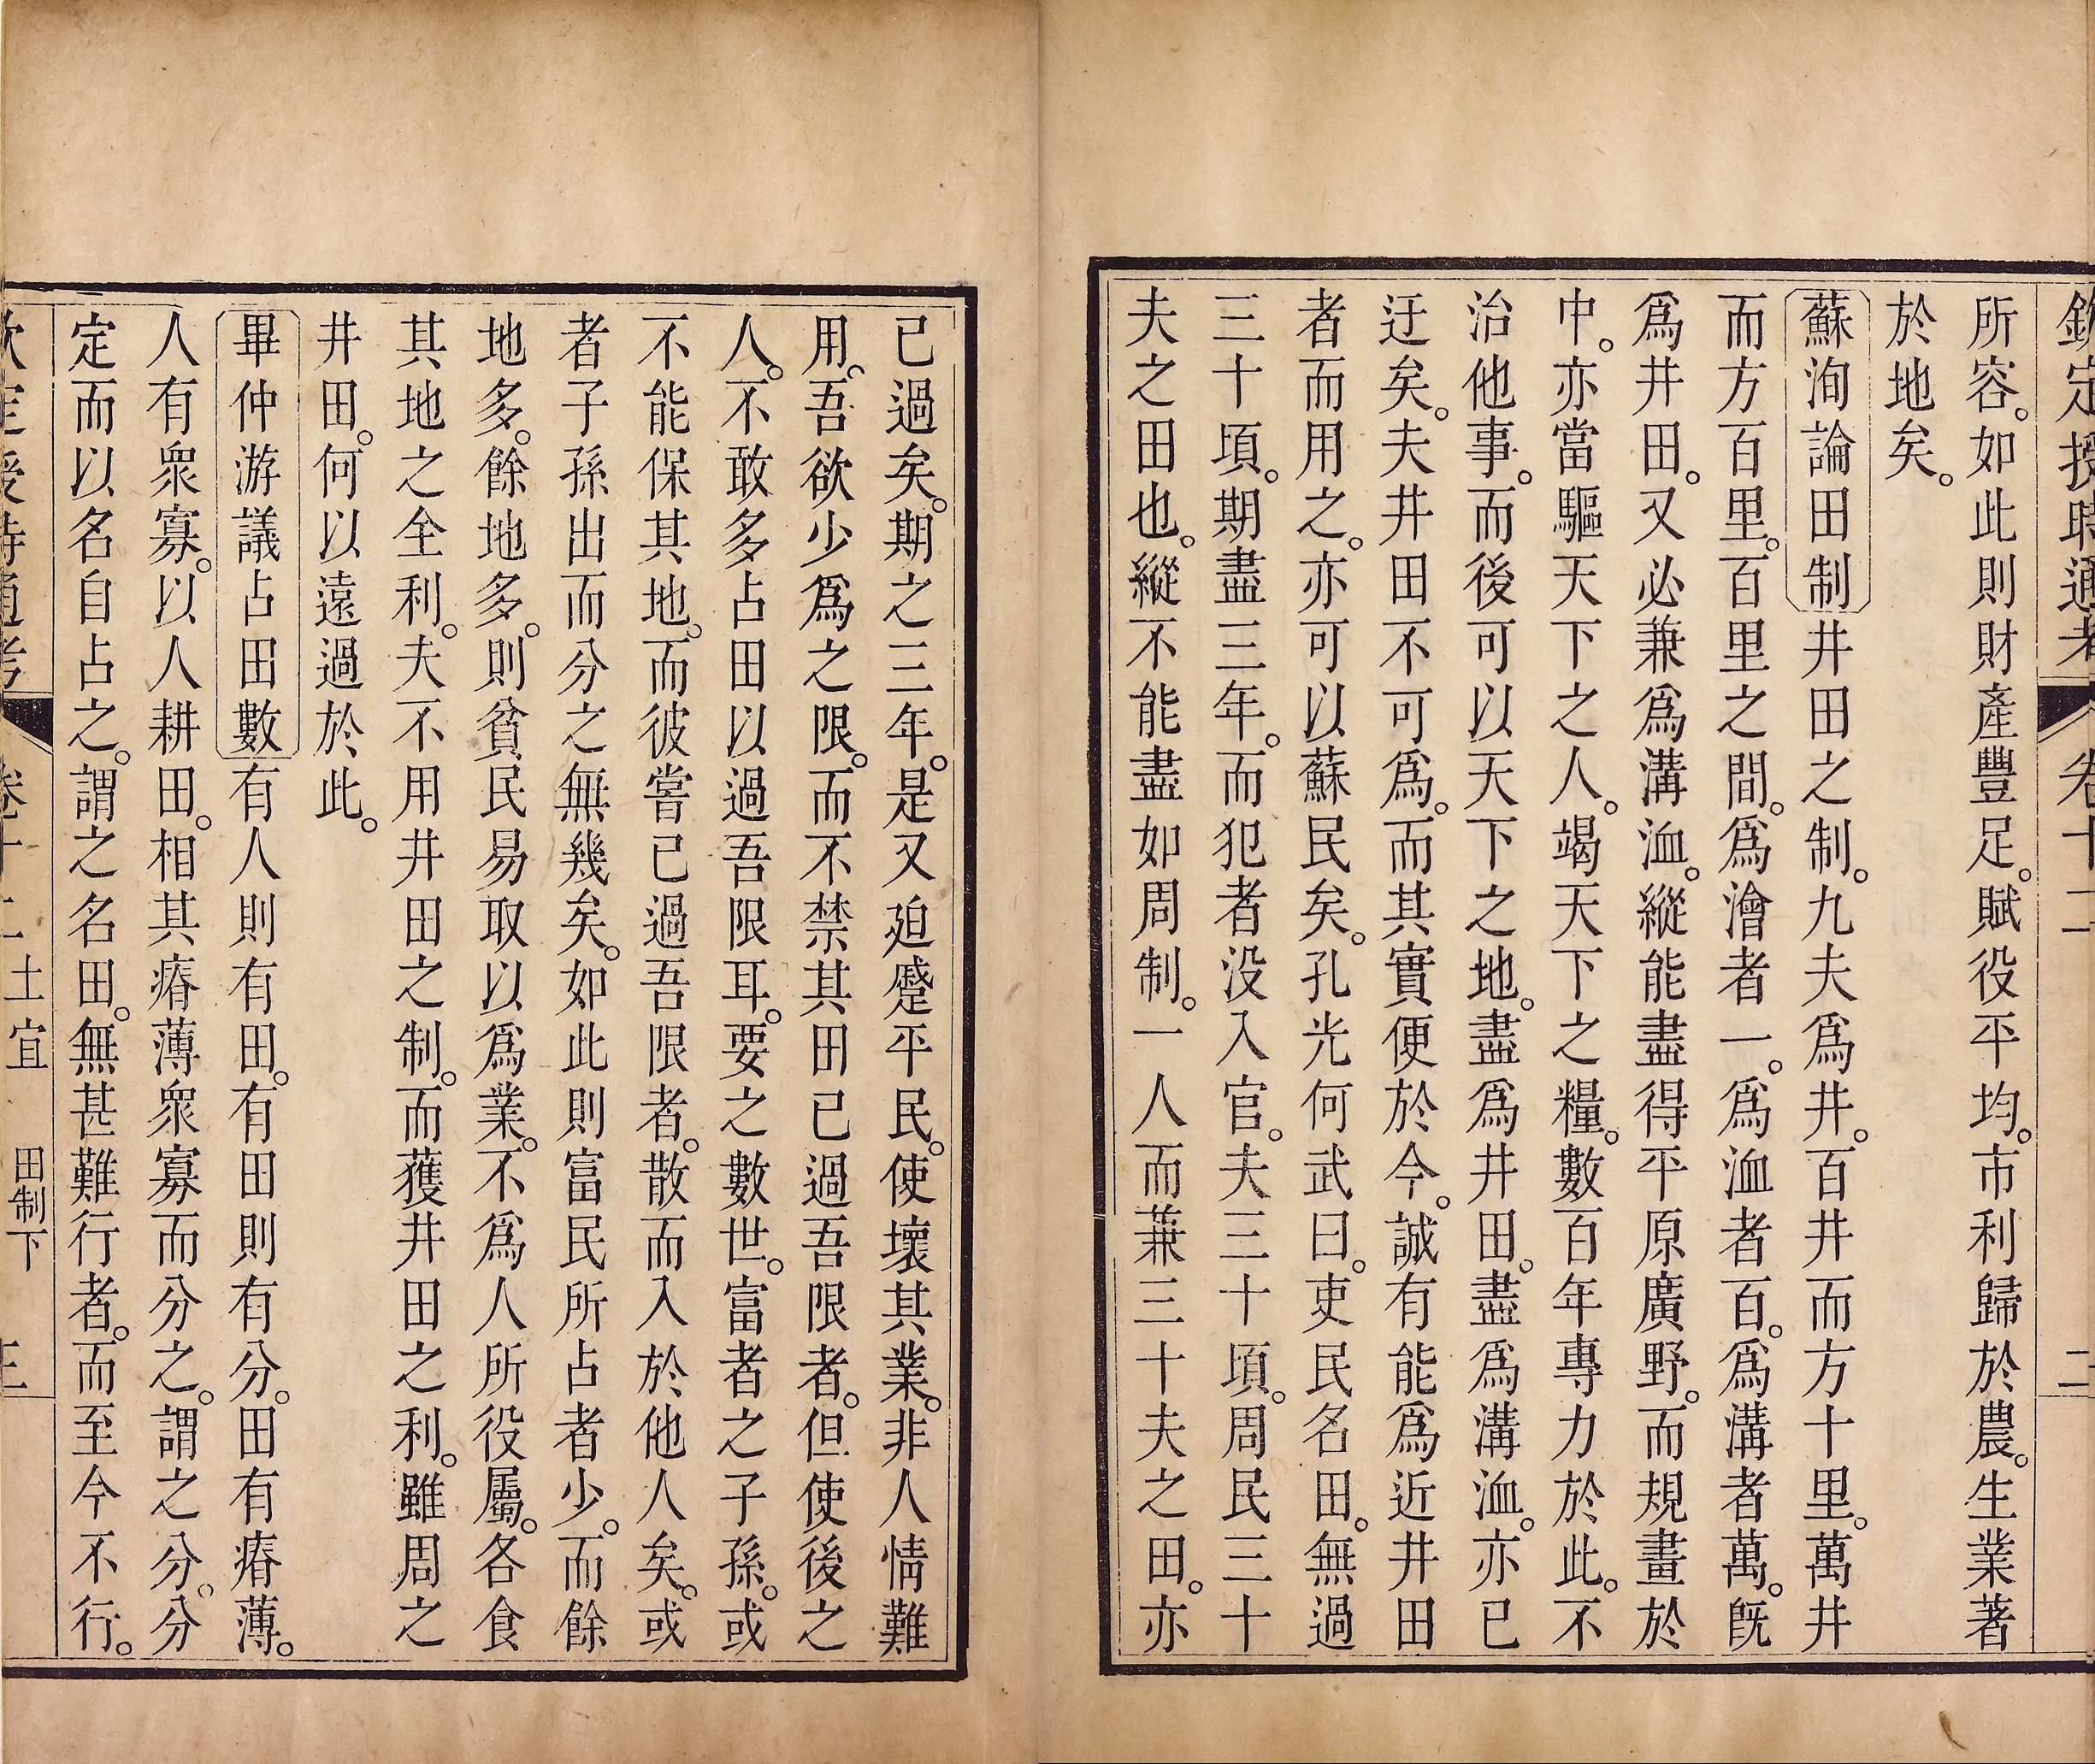 欽定授時通考 卷十二 二
所容。如此則財產豐足。賦役平均。市利歸於農。生業著
於地矣。
蘇洵論田制井田之制。九夫爲井。百井而方十里。萬井
而方百里。百里之間。爲澮者一。爲洫者百。爲溝者萬。旣
爲井田。又必兼爲溝洫。縱能盡得平原廣野。而規畫於
中。亦當驅天下之人。竭天下之糧。數百年專力於此。不
治他事。而後可以天下之地。盡爲井田。盡爲溝洫。亦已
迂矣。夫井田不可爲。而其實便於今。誠有能爲近井田
者而用之。亦可以蘇民矣。孔光何武曰。吏民名田。無過
三十頃。期盡三年。而犯者没入官。夫三十頃。周民三十
夫之田也。縱不能盡如周制。一人而兼三十夫之田。亦
已過矣。期之三年。是又廹蹙平民。使壞其業。非人情難
用。吾欲少爲之限。而不禁其田已過吾限者。但使後之
人。不敢多占田以過吾限耳。要之數世。富者之子孫。或
不能保其地。而彼嘗已過吾限者。散而入於他人矣。或
者子孫出而分之無幾矣。如此則富民所占者少。而餘
地多。餘地多。則貧民易取以爲業。不爲人所役屬。各食
其地之全利。夫不用井田之制。而獲井田之利。雖周之
井田。何以遠過於此。
畢仲游議占田數有人則有田。有田則有分。田有瘠薄。
人有衆寡。以人耕田。相其瘠薄衆寡而分之。謂之分。分
定而以名自占之。謂之名田。無甚難行者。而至今不行。
欽定授時通考 卷十二 土宜 田制下 三